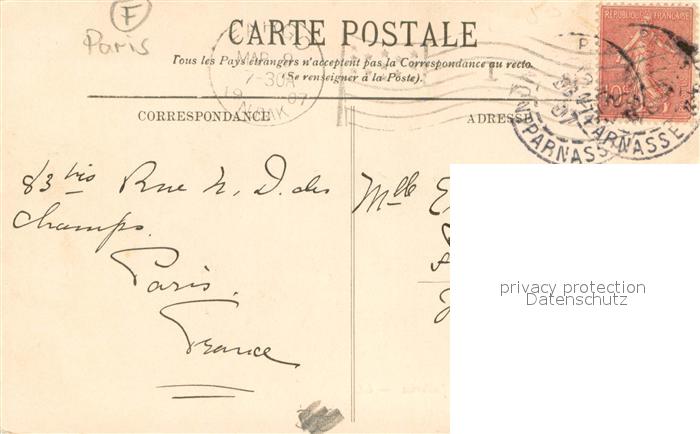 F
Paris
CARTE POSTALE
Tous les Pays étrangers n'acceptent pas la Correspondance au recto.
(Se renseigner à la Poste).
REPUBLIQUE FRANÇAISE
10c
7-30A
1907
PARNASSE
PARNASSE
CORRESPONDANCE
ADRESSE
83 bis Rue N. D. des
Champs.
Paris.
France
Mlle E
privacy protection
Datenschutz